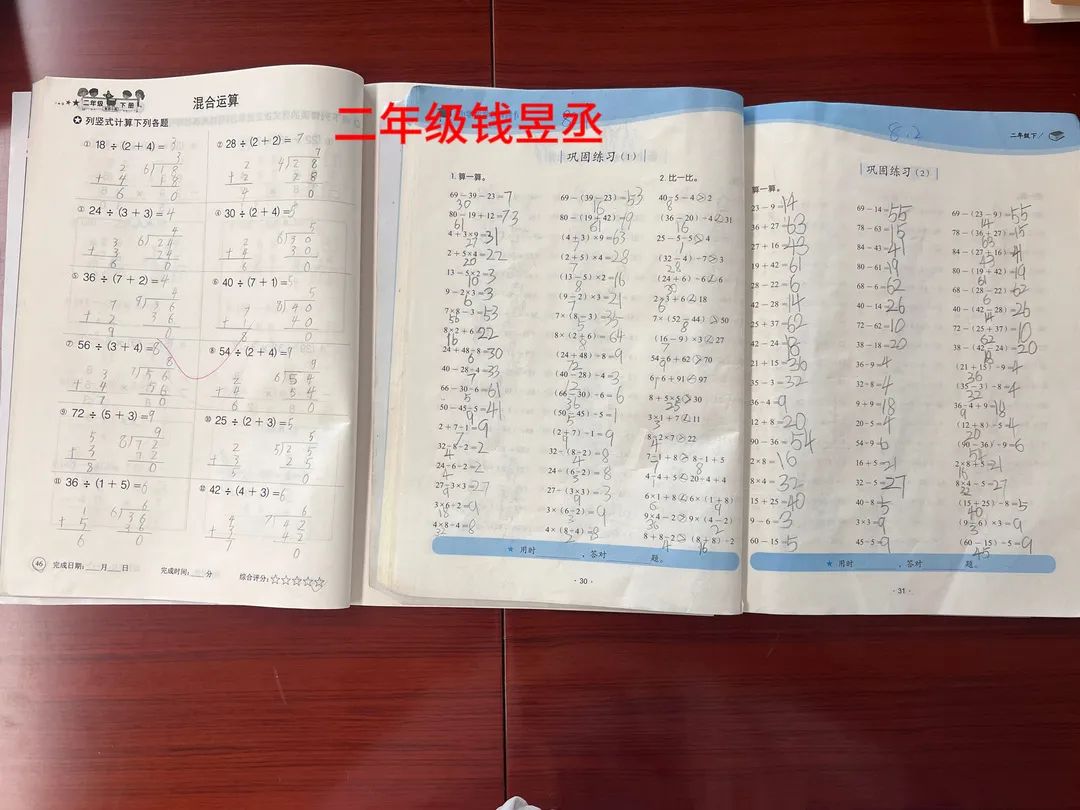 二年级钱昱丞
二年级 下册
混合运算
列竖式计算下列各题
① 18÷(2+4)=3
② 28÷(2+2)=7
③ 24÷(3+3)=4
④ 30÷(2+4)=5
⑤ 36÷(7+2)=4
⑥ 40÷(7+1)=5
⑦ 56÷(3+4)=8
⑧ 54÷(2+4)=9
⑨ 72÷(5+3)=9
⑩ 25÷(2+3)=5
⑪ 36÷(1+5)=6
⑫ 42÷(4+3)=6
46
完成日期:__月__日
完成时间:__分
综合评分:☆☆☆☆☆
巩固练习(1)
1. 算一算。
69-39-23=7
80-19+12=73
4+3×9=31
2+5×4=22
13-5×2=3
9-2×3=3
7×8-3=53
8×2+6=22
24+48÷8=30
40-28÷4=33
66-30÷6=61
50-45÷5=41
2+7÷1=9
32÷8-2=2
24÷6-2=2
27÷3×3=27
3×6÷2=9
4×8÷4=8
69-(39-23)=53
80-(19+42)=19
(4+3)×9=63
(2+5)×4=28
(13-5)×2=16
(9-2)×3=21
7×(8-3)=35
8×(2+6)=64
(24+48)÷8=9
(40-28)÷4=3
(66-30)÷6=6
(50-45)÷5=1
(2+7)÷1=9
32÷(8-2)=8
24÷(6-2)=8
27÷(3×3)=3
3×(6÷2)=9
4×(8÷4)=8
2. 比一比。
40÷5-4>2
(36-20)÷4<31
25-5÷5>4
(32-4)÷7>3
(24+6)-6<6
2×3+6<18
7×(52-44)>50
(16-9)×3<27
54÷6+62>70
6÷6+91<97
8+5×5>30
3×1+7<11
8÷2×7>22
7÷1+8>8-1+5
4÷4+5<20÷4+4
6×1+8<6×(1+8)
9×4-2>9×(4-2)
8+8÷2>(8+8)÷2
★ 用时 ,答对 题。
·30·
8.2
二年级下
巩固练习(2)
算一算。
23-9=14
36+27=63
27+16=43
19+42=61
28-22=6
42-28=14
25+37=62
42-24=18
21+15=36
35-3=32
36÷4=9
12+8=20
90-36=54
2×8=16
8×4=32
15+25=40
9-6=3
60-15=5
69-14=55
78-63=15
84-43=41
80-61=19
68-6=62
40-14=26
72-62=10
38-18=20
36÷9=4
32÷8=4
9+9=18
20÷5=4
54÷9=6
16+5=21
32-5=27
40÷8=5
3×3=9
45÷5=9
69-(23-9)=55
78-(36+27)=15
84-(27+16)=41
80-(19+42)=19
68-(28-22)=62
40-(42-28)=26
72-(25+37)=10
38-(42-24)=20
(21+15)÷9=4
(35-3)÷8=4
36÷4+9=18
(12+8)÷5=4
(90-36)÷9=6
2×8+5=21
8×4-5=27
(15+25)÷8=5
(9-6)×3=9
(60-15)÷5=9
★ 用时 ,答对 题。
·31·